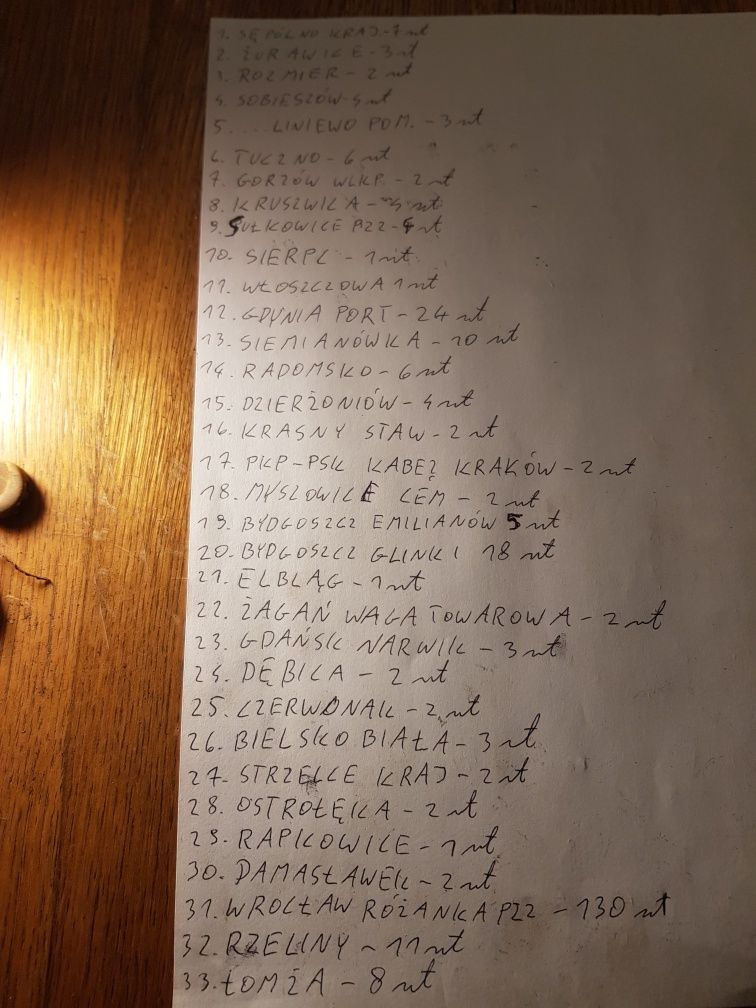 1. SĘPÓLNO KRAJ-7 szt
2. ŻURAWICE-3 szt
3. ROZMIER - 2 szt
4. SOBIESZÓW-4 szt
5. ....LINIEWO POM. - 3 szt
6. TUCZNO - 6 szt
7. GORZÓW WLKP. - 2 szt
8. KRUSZWICA - szt
9. SUŁKOWICE PZZ - szt
10. SIERPC - 1 szt.
11. WŁOSZCZOWA 1 szt
12. GDYNIA PORT - 24 szt
13. SIEMIANÓWKA - 10 szt
14. RADOMSKO - 6 szt
15. DZIERŻONIÓW - 4 szt
16. KRASNY STAW - 2 szt
17. PKP-PSK KABEZ KRAKÓW - 2 szt
18. MYSZOWICE CEM - 2 szt
19. BYDGOSZCZ EMILIANÓW 5 szt
20. BYDGOSZCZ GLINKI 18 szt
21. ELBLĄG - 1 szt
22. ŻAGAŃ WAGA TOWAROWA - 2 szt
23. GDAŃSK NARWIK - 3 szt
24. DĘBICA - 2 szt
25. CZERWONAK - 2 szt
26. BIELSKO BIAŁA - 3 szt
27. STRZELCE KRAJ - 2 szt
28. OSTROŁĘKA - 2 szt
29. RAPKOWICE - 1 szt
30. DAMASŁAWEK - 2 szt
31. WROCŁAW RÓŻANKA PZZ - 130 szt
32. RZECINY - 11 szt
33. ŁOMŻA - 8 szt